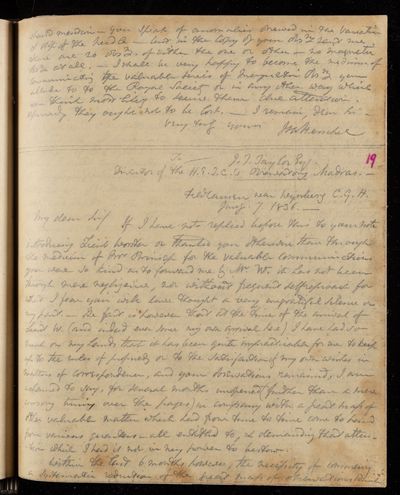 should mention — You speak of anomalies observed in the variation
& dip of the Needle — but in the copy of your Obsns sent me
there are no Obsns of either the one or other — no magnetic
Obsns at all. — I shall be very happy to become the medium of
communicating the valuable series of Magnetic Obsns you
allude to to the Royal Society or in any other way which
you think most likely to secure them due attention.
they ought not to be lost. — I remain dear Sir —
very truly yours
J F W Herschel
19
To J. T. Taylor Esqr
Director of the H. E. I. C.'s Observatory Madras. —
Feldhausen near Wynberg C. G. H.
Jany 7. 1836. —
My dear Sir/ If I have not replied before this to your note
introducing Lieut or thanked you otherwise than through
the medium of Mr Prinsep for the valuable communications
you were so kind as to forward me by Mr W. it has not been
through mere negligence, nor without frequent self reproach for
what I fear you will have thought a very ungrateful silence on
my part. — The fact is however that at the time of the arrival of
Lieut W. (and indeed ever since my own arrival here) I have had so
much on my hands that it has been quite impracticable for me to keep
up to the rules of or to the satisfaction of my own wishes in
matters of correspondence, and your Observations remained, I am
ashamed to say, for several months unopened (further than a mere
cursory over the pages) in company with a great heap of
other valuable matter which had from time to time come to hand
from various quarters — all entitled to, & demanding that atten-
-tion which I had it not in my power to bestow.
Within the last 6 months, however, the necessity of commencing
a systematic reduction of the great mass of observations which